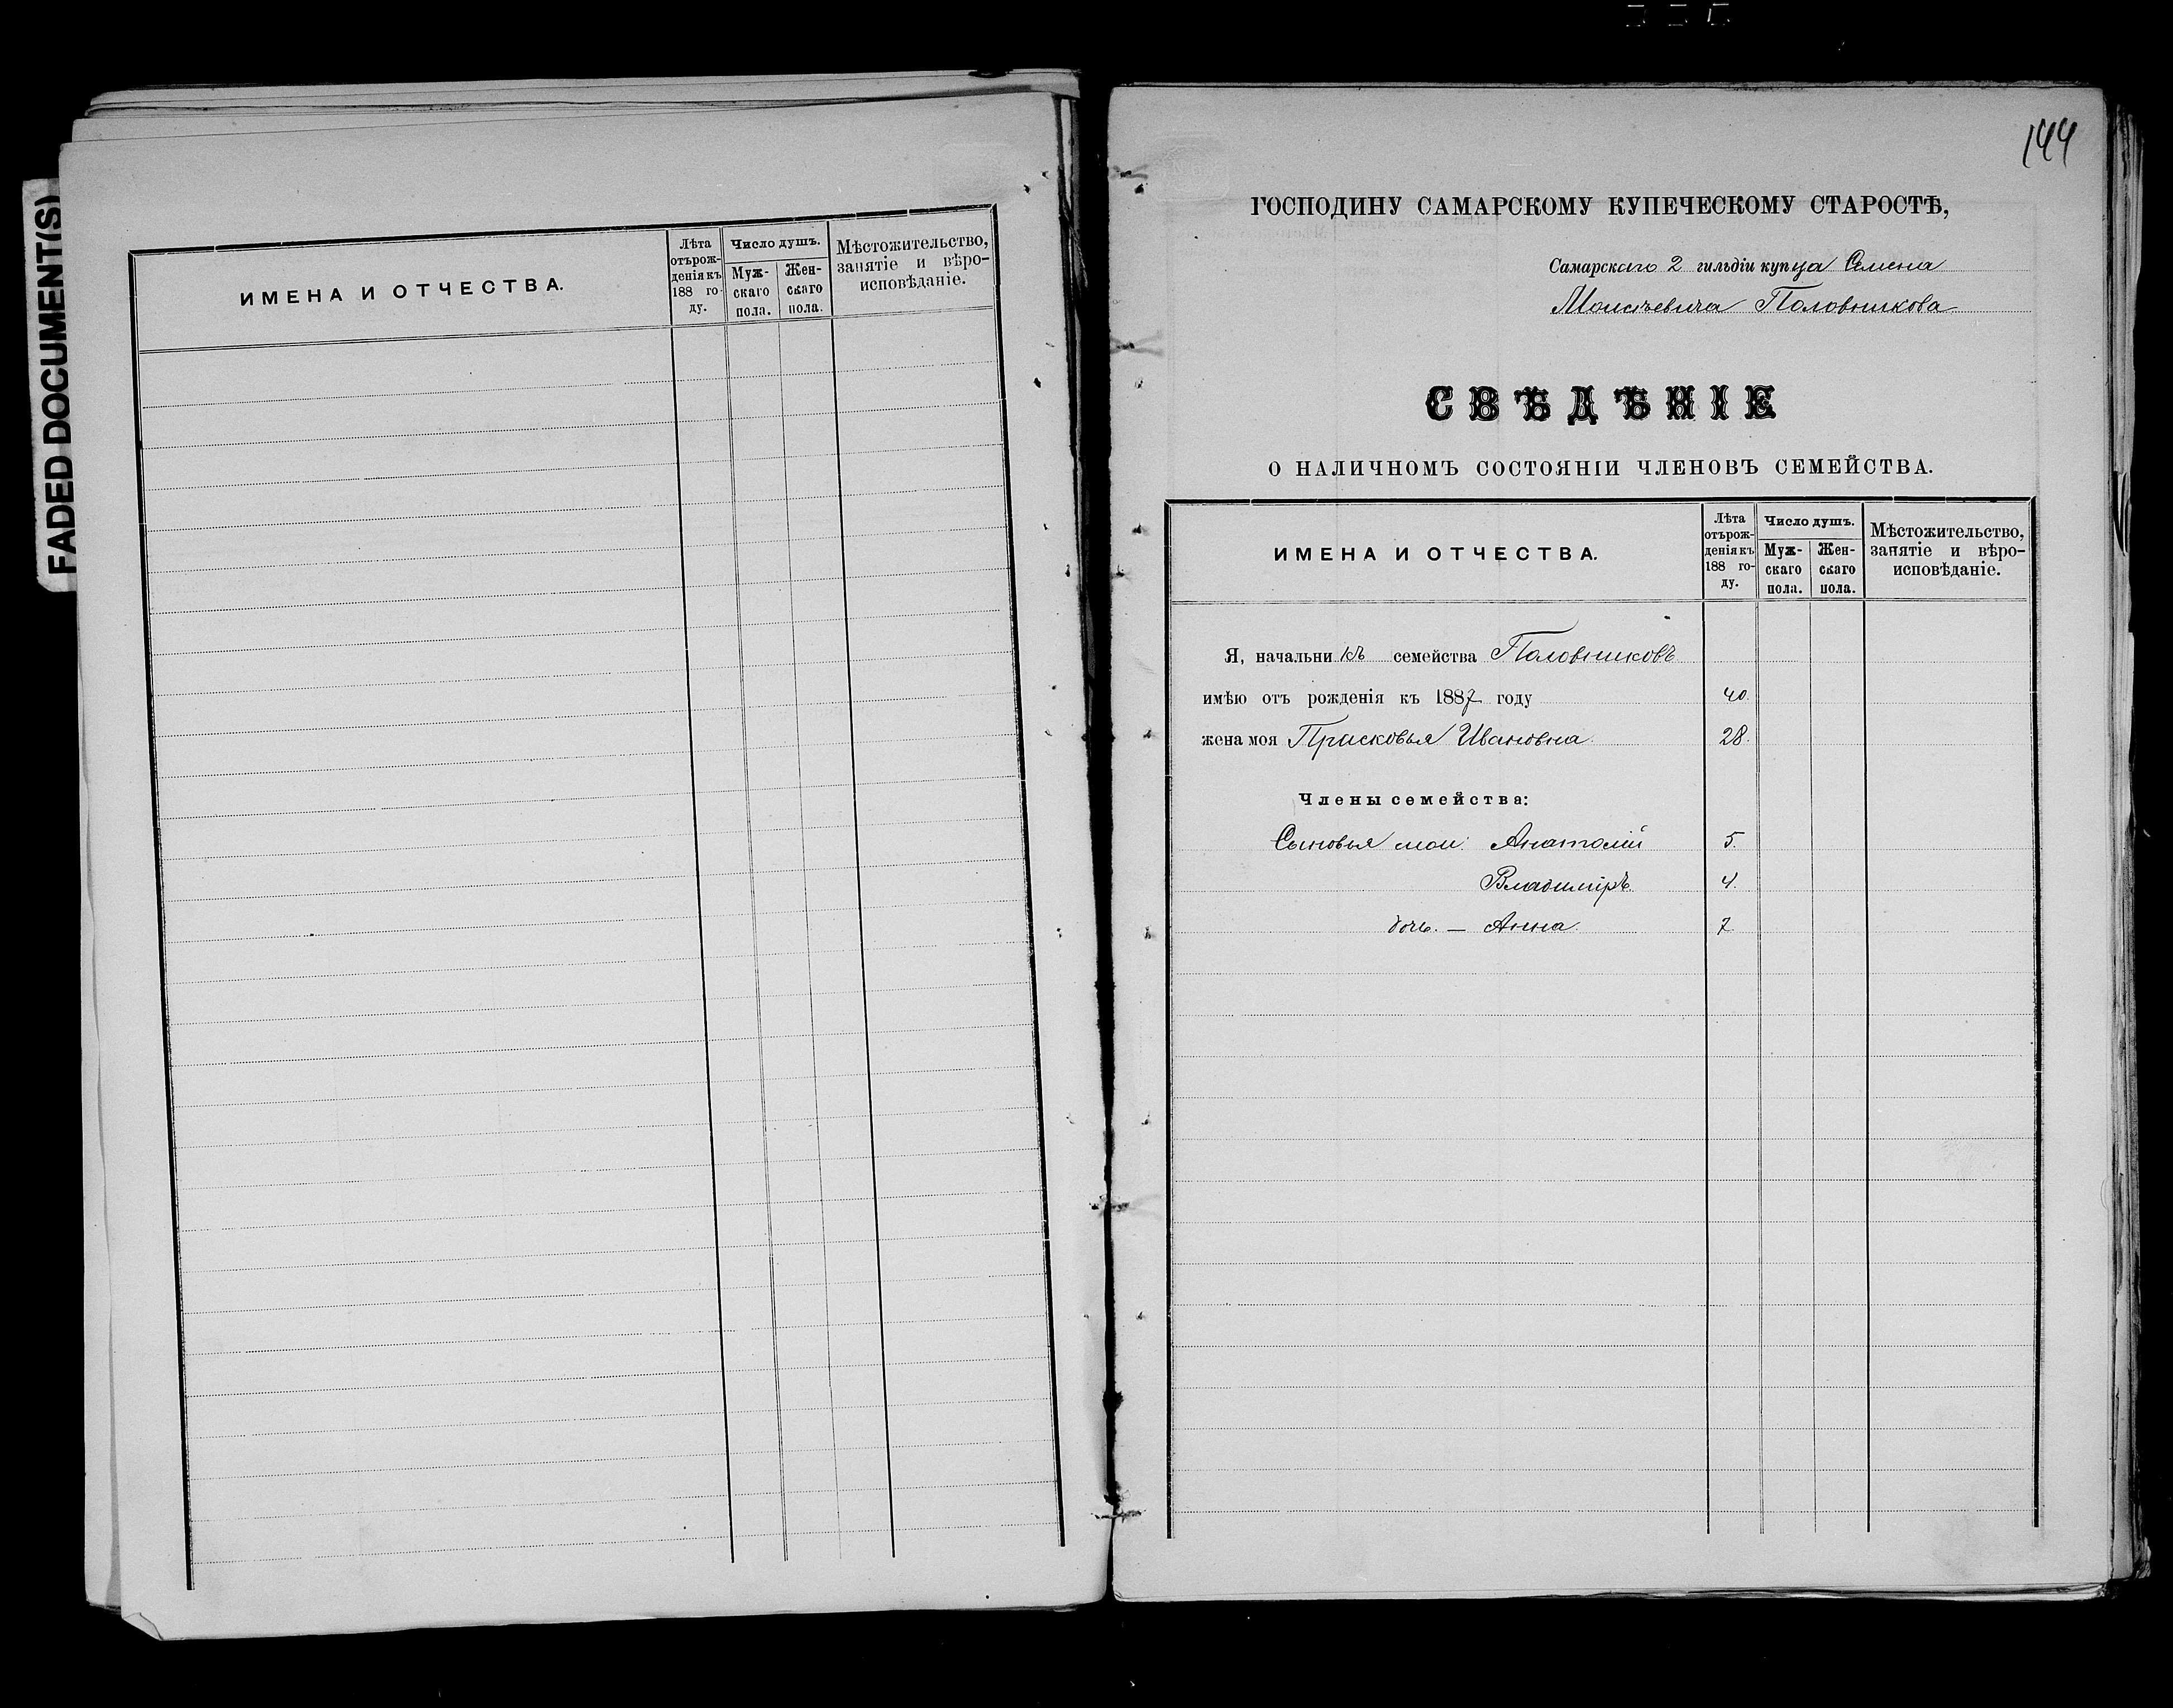 FADED DOCUMENT(S)
ИМЕНА И ОТЧЕСТВА.
Лѣта отърожденія къ 188 году.
Число душъ.
Мужскаго пола.
Женскаго пола.
Мѣстожительство, занятіе и вѣроисповѣданіе.
144
ГОСПОДИНУ САМАРСКОМУ КУПЕЧЕСКОМУ СТАРОСТѢ,
Самарскаго 2 гильдіи купца Семена
Моисѣевича Половникова
СВѢДѢНІЕ
О НАЛИЧНОМЪ СОСТОЯНІИ ЧЛЕНОВЪ СЕМЕЙСТВА.
ИМЕНА И ОТЧЕСТВА.
Лѣта отърожденія къ 188 году.
Число душъ.
Мужскаго пола.
Женскаго пола.
Мѣстожительство, занятіе и вѣроисповѣданіе.
Я, начальникъ семейства Половниковъ
имѣю отъ рожденія къ 1887 году 40.
жена моя Прасковья Ивановна. 28.
Члены семейства:
Сыновья мои: Анатолій 5.
Владиміръ 4.
дочь. — Анна. 7